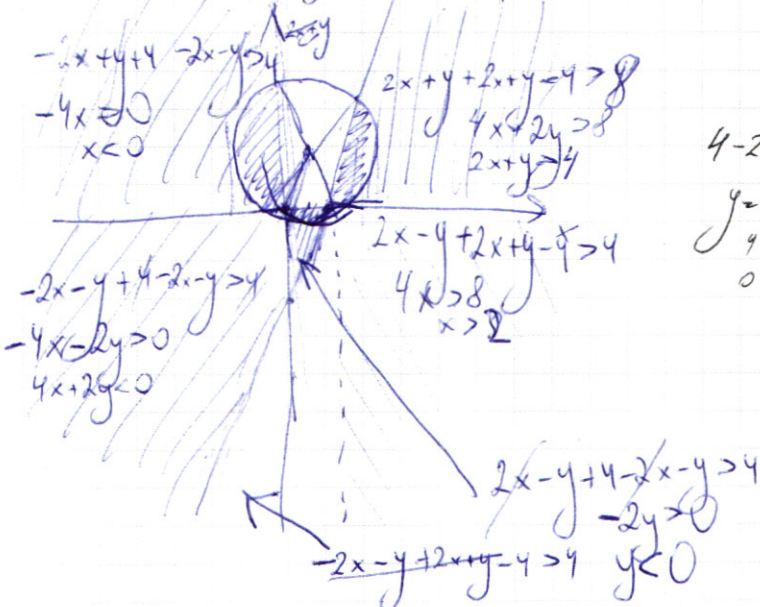 -2x+y+4-2x-y>4
-4x>0
x<0
2x+y+2x+y-4>8
4x+2y>8
2x+y>4
4-2
y=
4
0
2x-y+2x+y-4>4
4x>8
x>2
-2x-y+4-2x-y>4
-4x-2y>0
4x+2y<0
2x-y+4-2x-y>4
-2y>0
y<0
-2x-y+2x+y-4>4